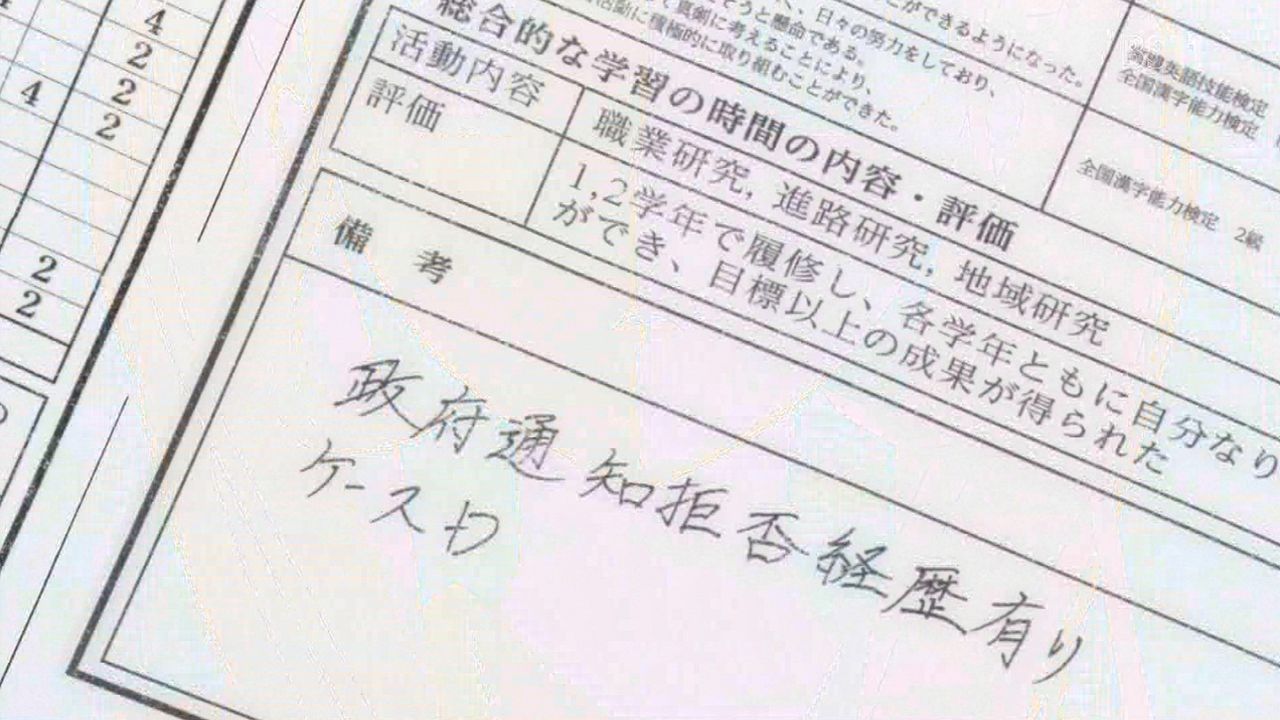 4
2
2
4
2
2
2
ができるようになった。
、日々の努力をしており、
そうと懸命である。
て真剣に考えることにより、
活動に積極的に取り組むことができた。
英語技能検定
全国漢字能力検定
全国漢字能力検定 2級
総合的な学習の時間の内容・評価
活動内容
職業研究, 進路研究, 地域研究
評価
1,2学年で履修し、各学年ともに自分なり
ができ、目標以上の成果が得られた
備考
政府通知拒否経歴有り
ケースD